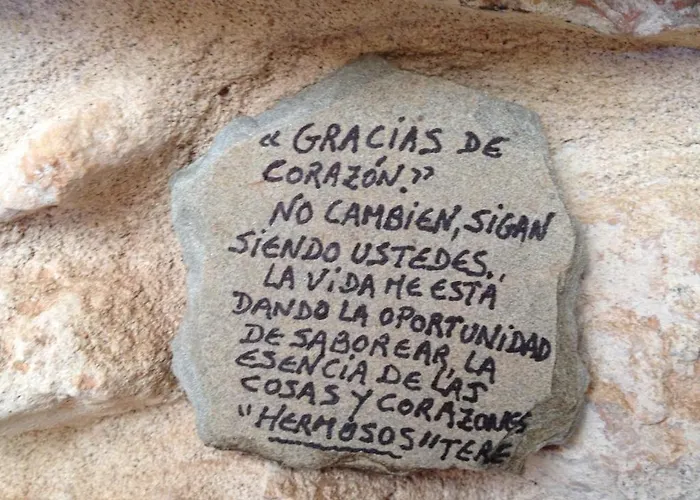 « GRACIAS DE
CORAZÓN."
NO CAMBIEN, SIGAN
SIENDO USTEDES.,
LA VIDA ME ESTA
DANDO LA OPORTUNIDAD
DE SABOREAR, LA
ESENCIA DE LAS
COSAS Y CORAZONES
"HERMOSOS" TERE